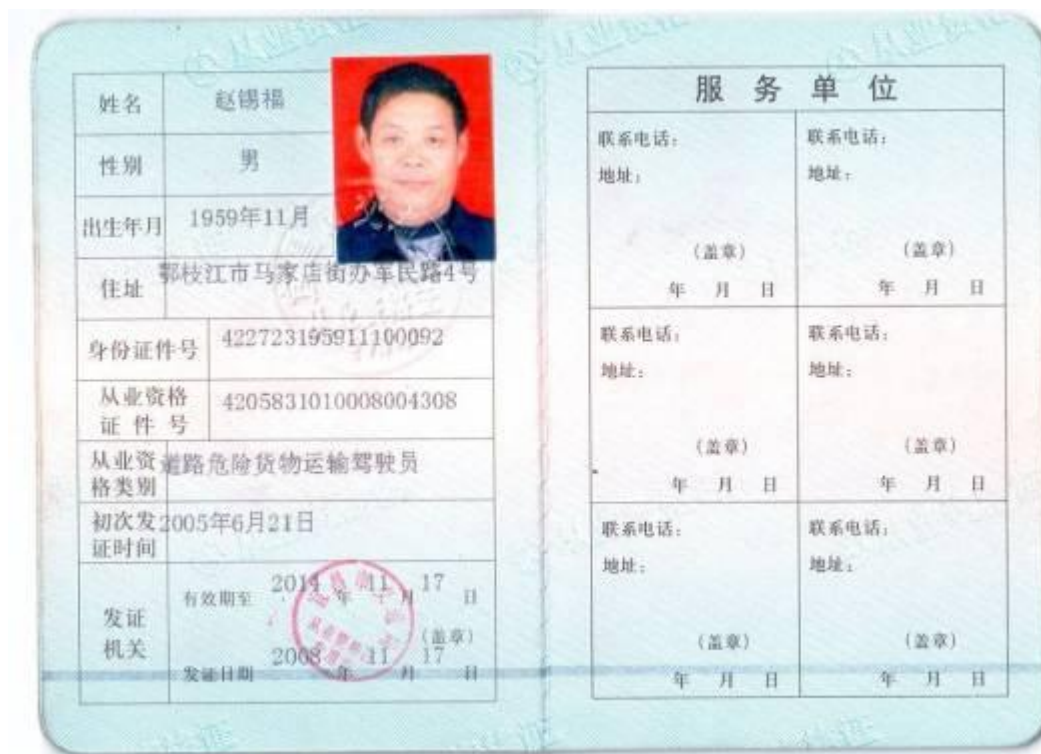 姓名 赵锡福
性别 男
出生年月 1959年11月
住址 鄂枝江市马家店街办车民路4号
身份证件号 422723195911100092
从业资格
证 件 号 4205831010008004308
从业资
格类别 道路危险货物运输驾驶员
初次发
证时间 2005年6月21日
发证
机关
有效期至 2014 年 11 月 17 日
(盖章)
发证日期 2008 年 11 月 17 日
服 务 单 位
联系电话: 联系电话:
地址: 地址:
(盖章) (盖章)
年 月 日 年 月 日
联系电话: 联系电话:
地址: 地址:
(盖章) (盖章)
年 月 日 年 月 日
联系电话: 联系电话:
地址: 地址:
(盖章) (盖章)
年 月 日 年 月 日